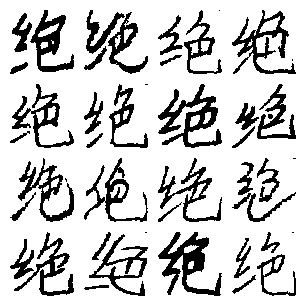 绝绝绝绝
绝绝绝绝
绝绝绝绝
绝绝绝绝